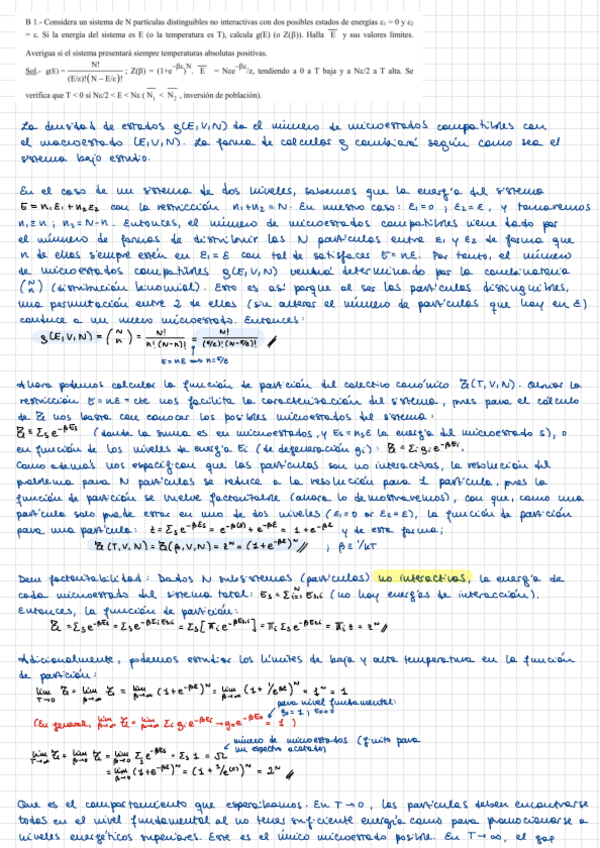 B 1.- Considera un sistema de N partículas distinguibles no interactivas con dos posibles estados de energías ε₁ = 0 y ε₂
= ε. Si la energía del sistema es E (o la temperatura es T), calcula g(E) (o Z(β)). Halla E̅ y sus valores límites.
Averigua si el sistema presentará siempre temperaturas absolutas positivas.
Sol.- g(E) = N! / (E/ε)!(N − E/ε)! ; Z(β) = (1+e^−βε)^N. E̅ = Nεe^−βε/z, tendiendo a 0 a T baja y a Nε/2 a T alta. Se
verifica que T < 0 si Nε/2 < E < Nε (N̅₁ < N̅₂, inversión de población).
La densidad de estados g(E,V,N) da el número de microestados compatibles con
el macroestado (E,V,N). La forma de calcular g cambiará según como sea el
sistema bajo estudio.
En el caso de un sistema de dos niveles, sabemos que la energía del sistema
E = n₁ε₁ + n₂ε₂ con la restricción n₁+n₂ = N. En nuestro caso: ε₁=0 ; ε₂=ε, y tomaremos
n₁≡n ; n₂=N-n. Entonces, el número de microestados compatibles viene dado por
el número de formas de distribuir las N partículas entre ε₁ y ε₂ de forma que
n de ellas siempre estén en ε₁=ε con tal de satisfacer E=nε. Por tanto, el número
de microestados compatibles g(E,V,N) vendrá determinado por la combinatoria
(N n) (distribución binomial). Esto es así porque al ser las partículas distinguibles,
una permutación entre 2 de ellas (sin alterar el número de partículas que hay en ε)
conduce a un nuevo microestado. Entonces:
g(E,V,N) = (N n) = N! / n!(N-n)! = N! / (E/ε)!(N-E/ε)!
E=nε ⟹ n=E/ε
Ahora podemos calcular la función de partición del colectivo canónico Z(T,V,N). Obviar la
restricción E=nε=cte nos facilita la caracterización del sistema, pues para el cálculo
de Z nos basta con conocer los posibles microestados del sistema:
Z = Σₛ e^-βEs (donde la suma es en microestados, y Es=nₛε la energía del microestado s), o
en función de los niveles de energía Ei (de degeneración gi): Z = Σi gi e^-βEi.
Como además nos especifican que las partículas son no interactivas, la resolución del
problema para N partículas se reduce a la resolución para 1 partícula, pues la
función de partición se vuelve factorizable (ahora lo demostraremos), con que, como una
partícula solo puede estar en uno de dos niveles (ε₁=0 or ε₂=ε), la función de partición
para una partícula: z = Σₛ e^-βεs = e^-β(0) + e^-βε = 1 + e^-βε y de esta forma:
Z(T,V,N) = Z(β,V,N) = z^N = (1+e^-βε)^N ; β≡1/kT
Dem factorizabilidad: Dados N subsistemas (partículas) no interactivas, la energía de
cada microestado del sistema total: Es = Σ_{i=1}^N Es,i (no hay energías de interacción).
Entonces, la función de partición:
Z = Σₛ e^-βEs = Σₛ e^-βΣi Es,i = Σₛ [Πi e^-βEs,i] = Πi Σₛ e^-βEs,i = Πi z = z^N
Adicionalmente, podemos estudiar los límites de baja y alta temperatura en la función
de partición:
lim T→0 Z = lim β→∞ Z = lim β→∞ (1+e^-βε)^N = lim β→∞ (1+ 1/e^βε)^N = 1^N = 1
para nivel fundamental:
g₀=1 ; E₀=0
(En general, lim β→∞ Z = lim β→∞ Σi gi e^-βEi → g₀e^-βE₀ = 1)
número de microestados (finito para
un espectro acotado)
lim T→∞ Z = lim β→0 Z = lim β→0 Σₛ e^-βEs = Σₛ 1 = Ω
= lim β→0 (1+e^-βε)^N = (1 + 1/e^(0))^N = 2^N
Que es el comportamiento que esperábamos. En T→0, las partículas deben encontrarse
todas en el nivel fundamental al no tener suficiente energía como para promocionarse a
niveles energéticos superiores. Este es el único microestado posible. En T→∞, el gap